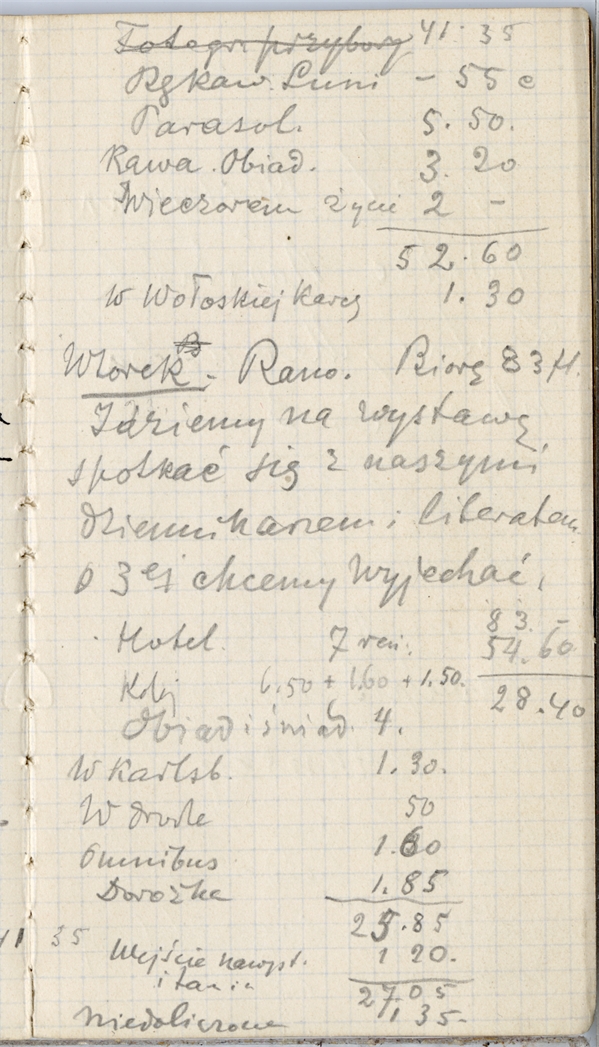 Fotogr. przybory 41.35
Rękaw. Luni - 55 c
Parasol. 5.50.
Kawa. Obiad. 3.20
Wieczorem życie 2 -
52.60
W Wołoskiej Karcz 1.30
Wtorek. Rano. Biorę 83 fl.
Idziemy na wystawę
spotkać się z naszymi
dziennikarzem i literatem
o 3ej chcemy wyjechać,
83.-
Hotel. 7 reń. 54.60
Kolej 6.50 + 1.60 + 1.50.
28.40
Obiad i śniad. 4.
W Karlsb. 1.30.
W drodze 50
Omnibus 1.60
Dorożka 1.85
25.85
41 35
Wejście na wyst. 1 20.
27 05
Niedoliczone 1 35-